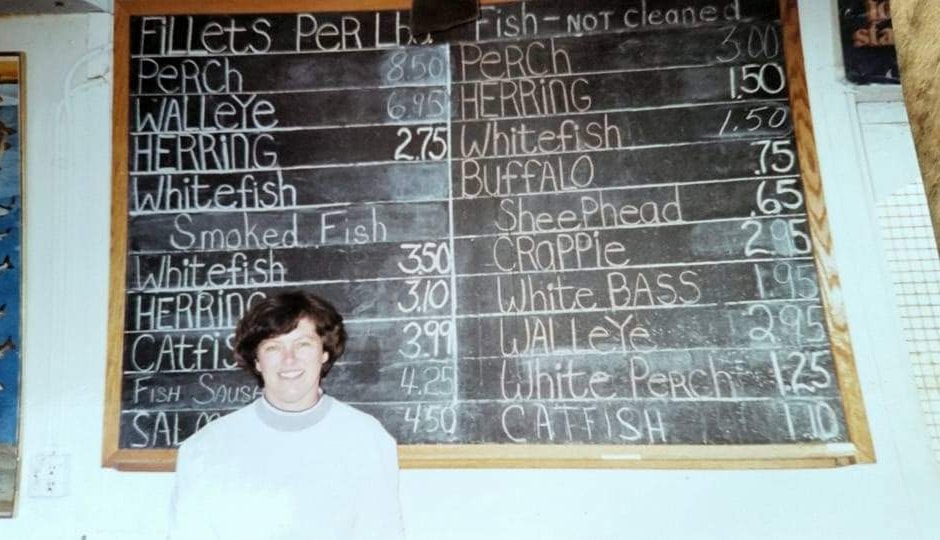 Fillets Per Lb.
Perch 8.50
Walleye 6.95
Herring 2.75
Whitefish
Smoked Fish
Whitefish 3.50
Herring 3.10
Catfis 3.99
Fish Sausa 4.25
Sal 4.50
Fish - not cleaned
Perch 3.00
Herring 1.50
Whitefish 1.50
Buffalo .75
Sheephead .65
Crappie 2.95
White Bass 1.95
Walleye 2.95
White Perch 1.25
Catfish 1.10